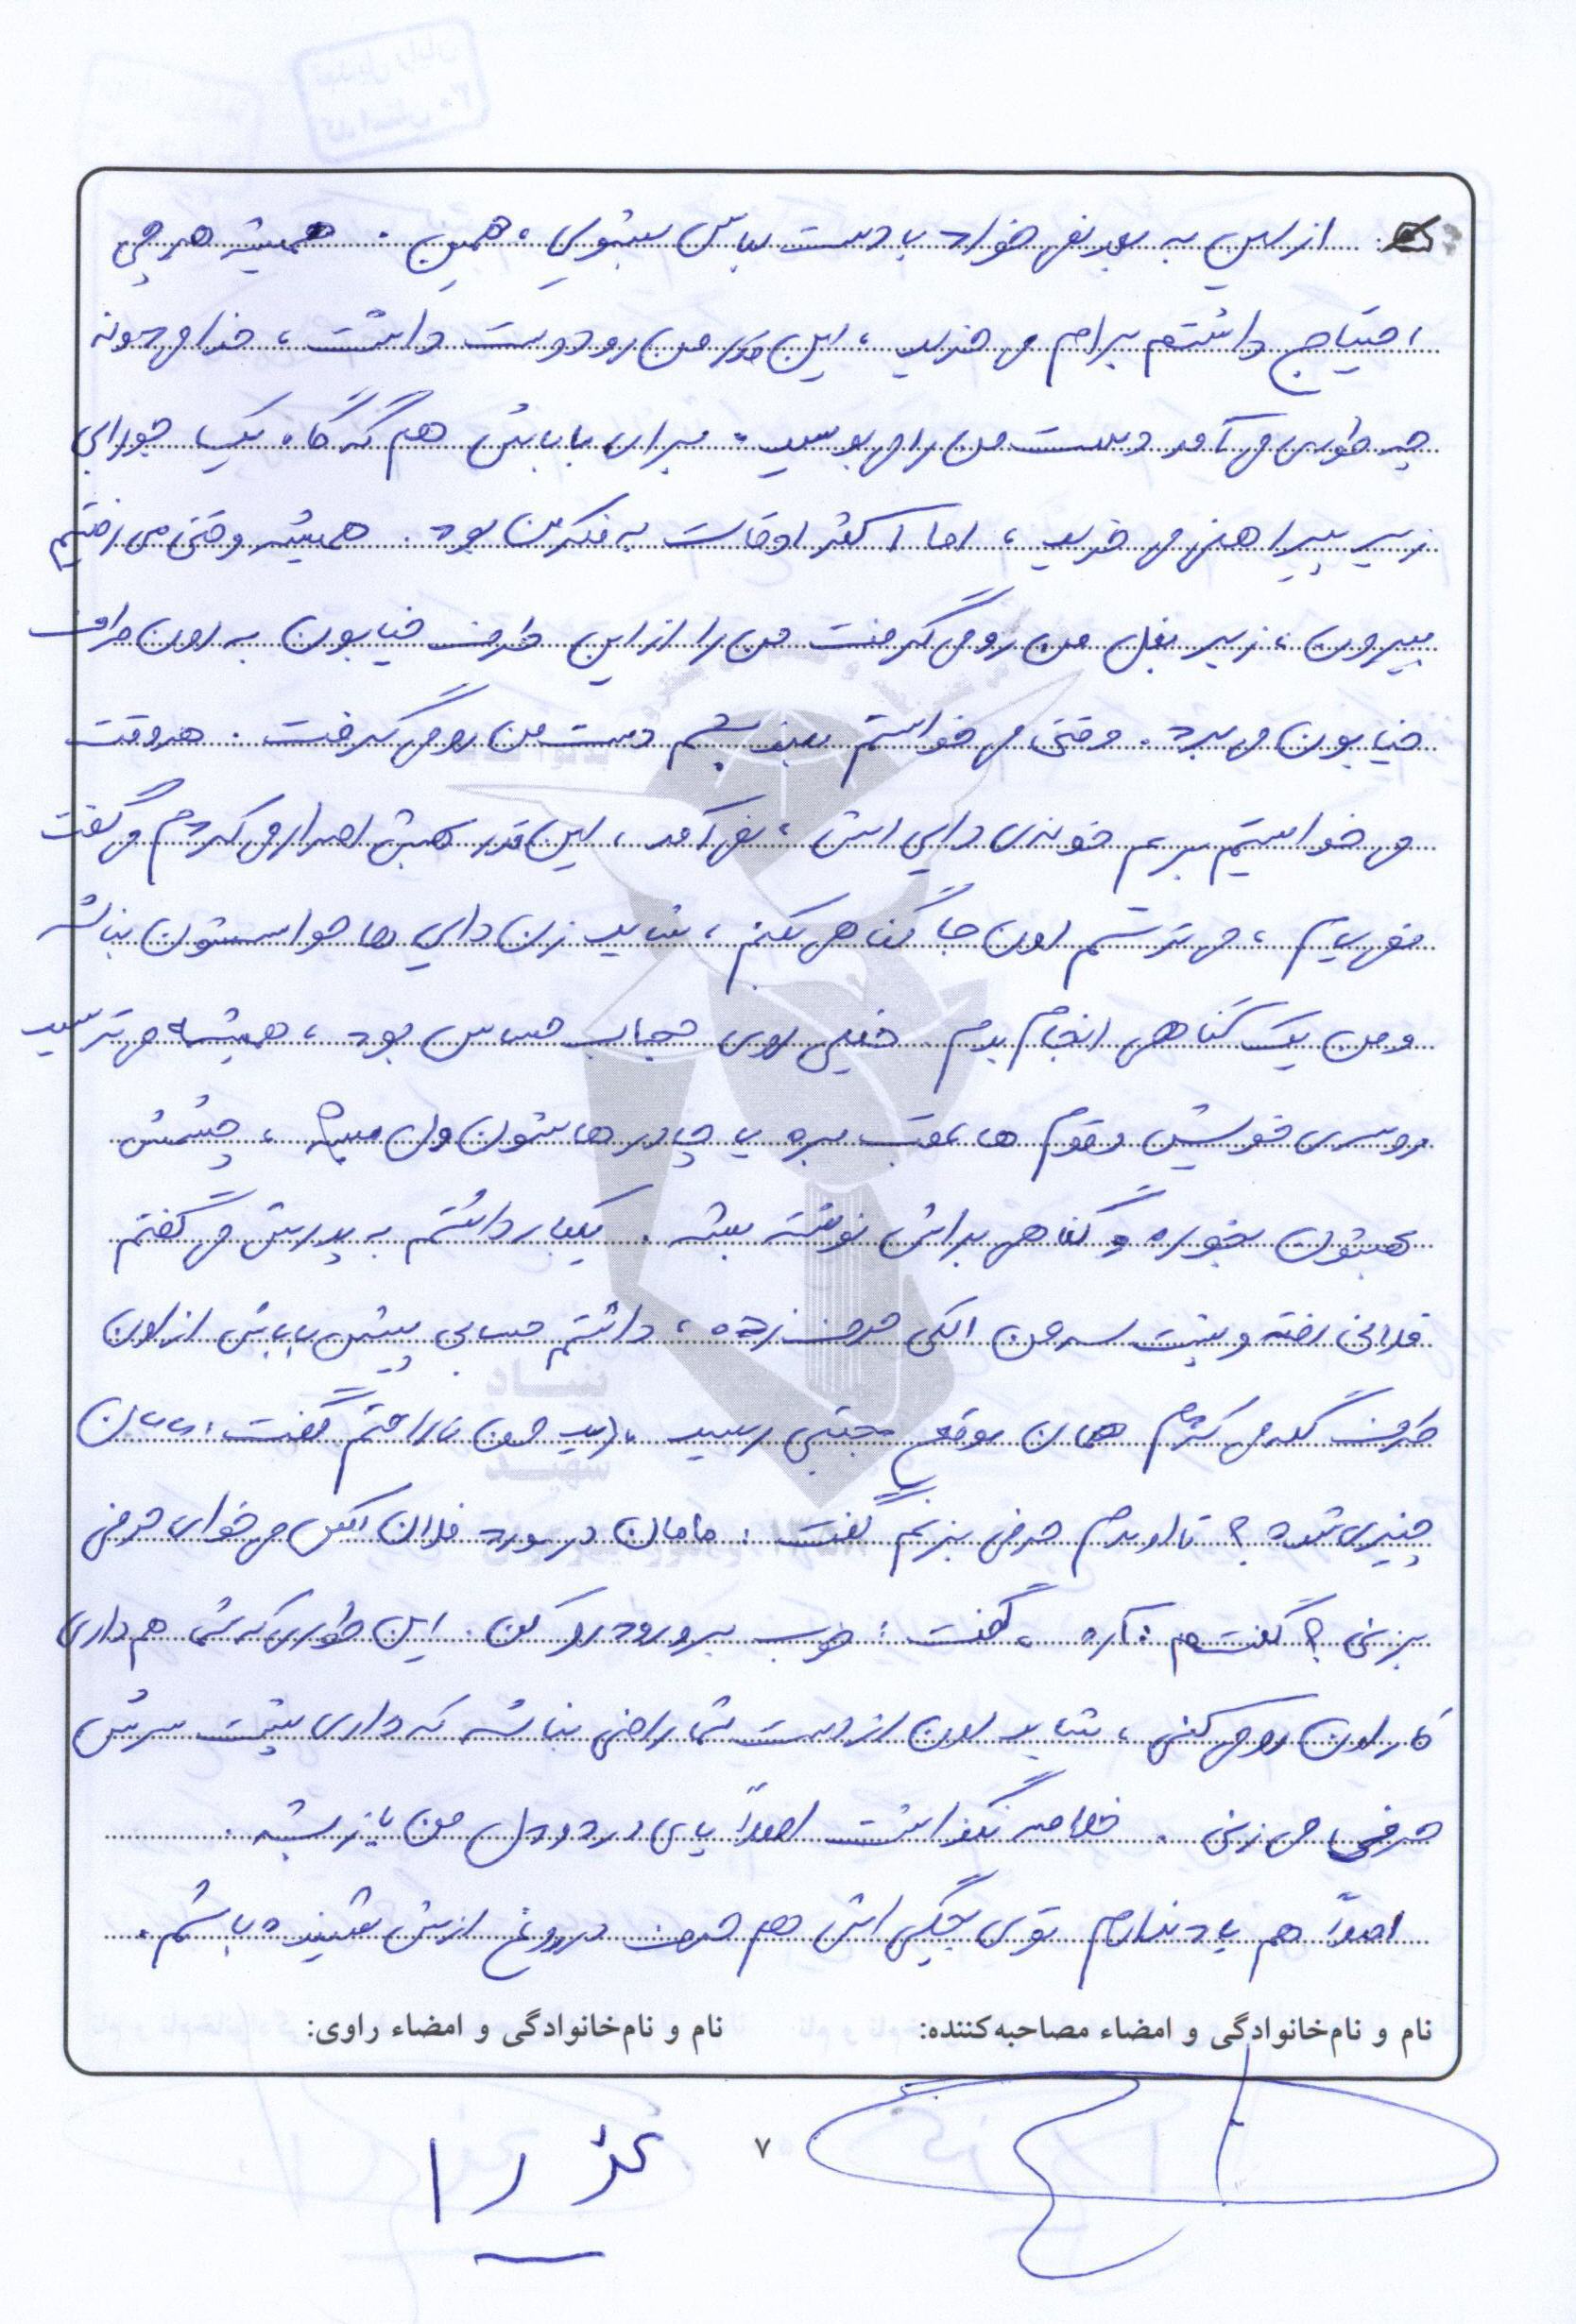 از این به بعد نمی خواد با دست لباس بشوری، همین. همیشه هر چی
احتیاج داشتم برام می خرید، این قدر من رو دوست داشت، خدا می دونه
چه طوری می آمد دست من را می بوسید. برای باباش هم گه گاه یک جورابی
زیر پیراهنی می خرید، اما اکثر اوقات به فکر من بود. همیشه وقتی می رفتیم
بیرون، زیر بغل من رو می گرفت من را از این طرف خیابون به اون طرف
خیابون می برد. وقتی می خواستم بلند بشم دست من رو می گرفت. هر وقت
می خواستیم بریم خونه ی دایی اش، نمی آمد، این قدر بهش اصرار می کردم می گفت
نمی یام، می ترسم اون جا گناهی بکنم، شاید زن دایی ها حواسشون نباشه
و من یک گناهی انجام بدم. خیلی روی حجاب حساس بود، همیشه می ترسید
روسری خویش و قوم ها عقب بره یا چادر هاشون ول بشه، چشمش
بهشون بخوره و گناهی براش نوشته بشه. یکبار داشتم به پدرش می گفتم
فلانی رفته و پشت سر من الکی حرف زده، داشتم حسابی پیش باباش از اون
طرف گله می کردم همان موقع مجتبی رسید، دید من ناراحتم گفت: مامان
چیزی شده؟ تا اومدم حرفی بزنم گفت: مامان در مورد فلان کس می خوای حرفی
بزنی؟ گفتم: آره، گفت: خوب برو رودررو کن. این طوری که شما هم داری
کار اون رو می کنی، شاید اون از دست شما راضی نباشه که داری پشت سرش
حرفی می زنی. خلاصه نگذاشت اصلاً پای درد و دل من باز بشه.
اصلاً هم یاد ندارم توی بچگی اش هم حرف دروغ ازش شنیده باشم.
نام و نام‌خانوادگی و امضاء مصاحبه‌کننده: نام و نام‌خانوادگی و امضاء راوی:
۷